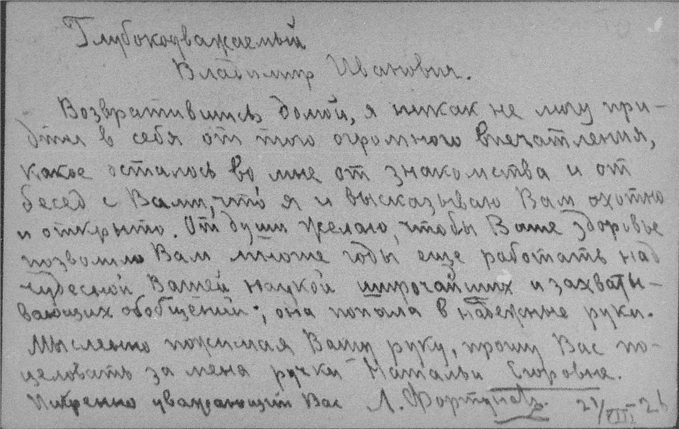 Глубокоуважаемый
Владимир Иванович.
Возвратившись домой, я никак не могу при-
дти в себя от того огромного впечатления,
какое осталось во мне от знакомства и от
бесед с Вами, что я и высказываю Вам охотно
и открыто. От души желаю, чтобы Ваше здоровье
позволило Вам многие годы еще работать над
чудесной Вашей наукой широчайших и захваты-
вающих обобщений; она попала в надежные руки.
Мысленно пожимая Вашу руку, прошу Вас по-
целовать за меня ручки Натальи Егоровне.
Искренно уважающий Вас Л. Фортунатов. 21/VIII 26